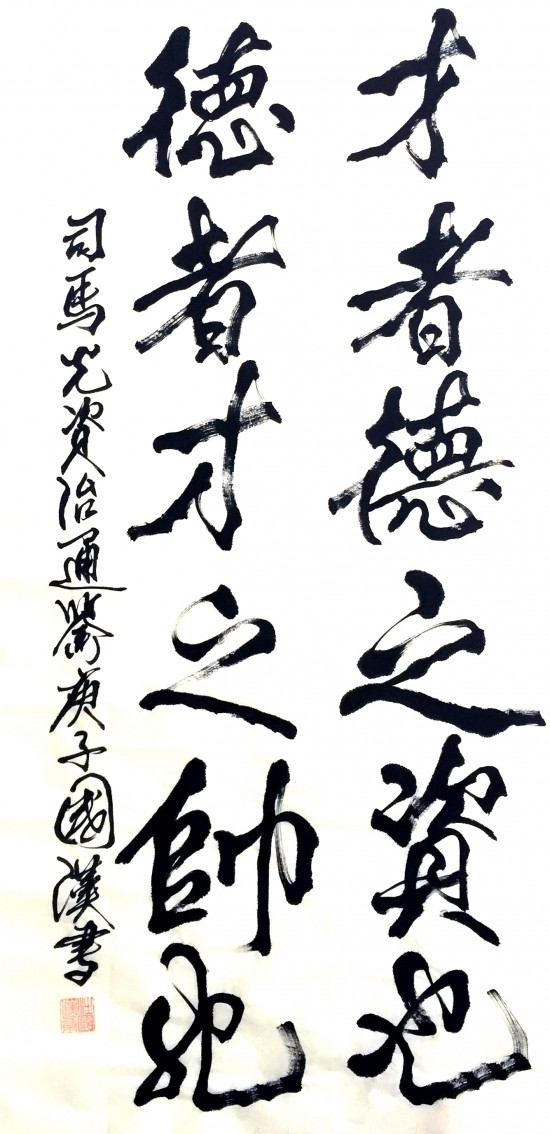 才者德之資也
德者才之帥也
司馬光資治通鑒庚子國漢書